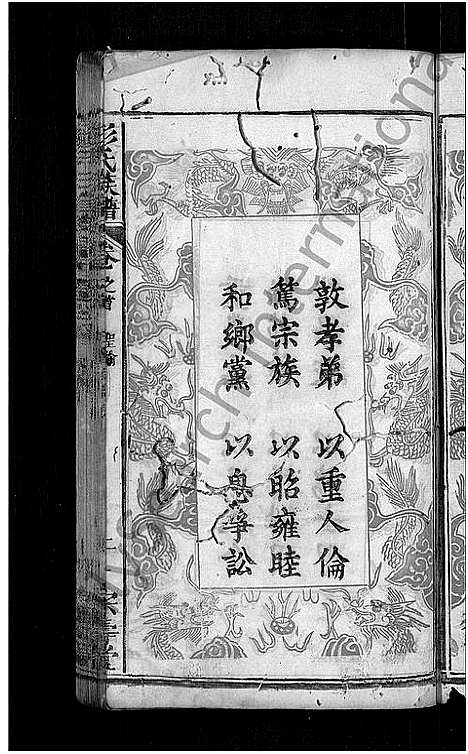 敦孝弟　以重人倫
篤宗族　以昭雍睦
和鄉黨　以息爭訟
彭氏族譜　卷之首